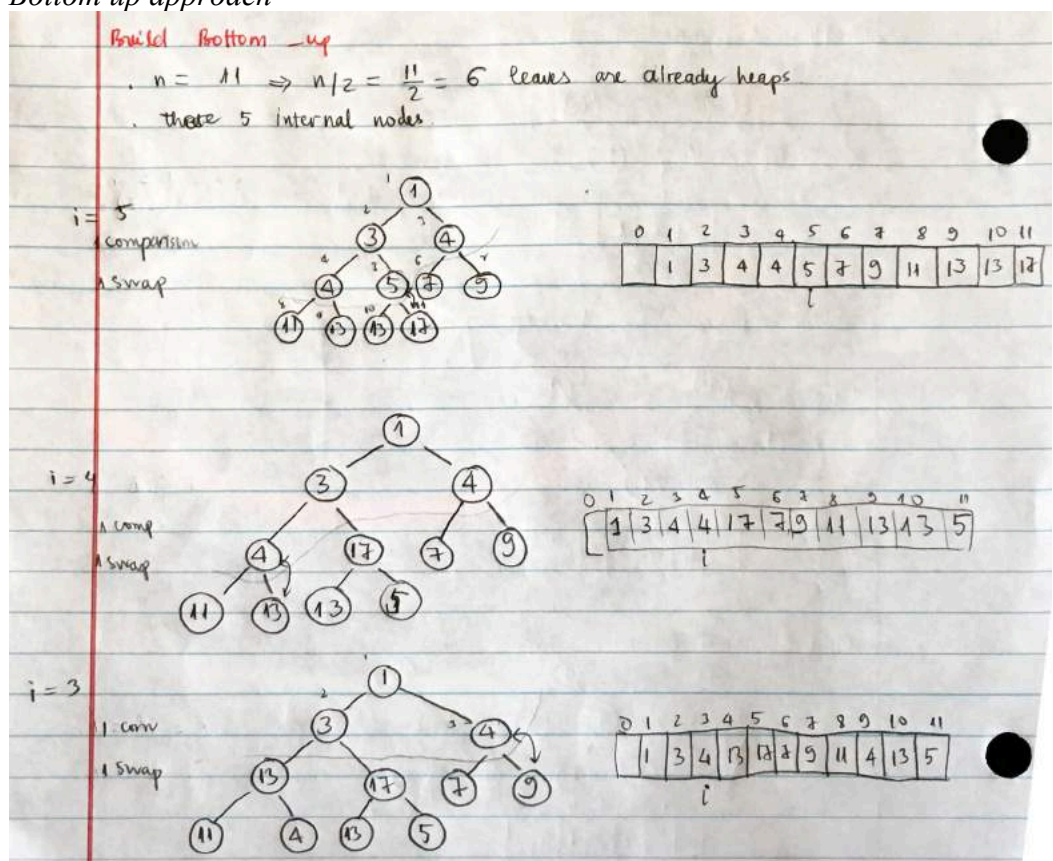 Bottom up approach
Build Bottom-up
. n = 11 ⇒ n/2 = 11/2 = 6 leaves are already heaps
. these 5 internal nodes.
i = 5
1 comparison
1 swap
1
1
2 3
3 4
4 5 6 7
4 5 7 9
8 9 10 11
11 13 13 17
0 1 2 3 4 5 6 7 8 9 10 11
1 3 4 4 5 7 9 11 13 13 17
i
i = 4
1 comp
1 swap
1
3 4
4 17 7 9
11 13 13 5
0 1 2 3 4 5 6 7 8 9 10 11
1 3 4 4 17 7 9 11 13 13 5
i
i = 3
1 com
1 swap
1
2 3
3 4
13 17 7 9
11 4 13 5
0 1 2 3 4 5 6 7 8 9 10 11
1 3 4 13 17 7 9 11 4 13 5
i